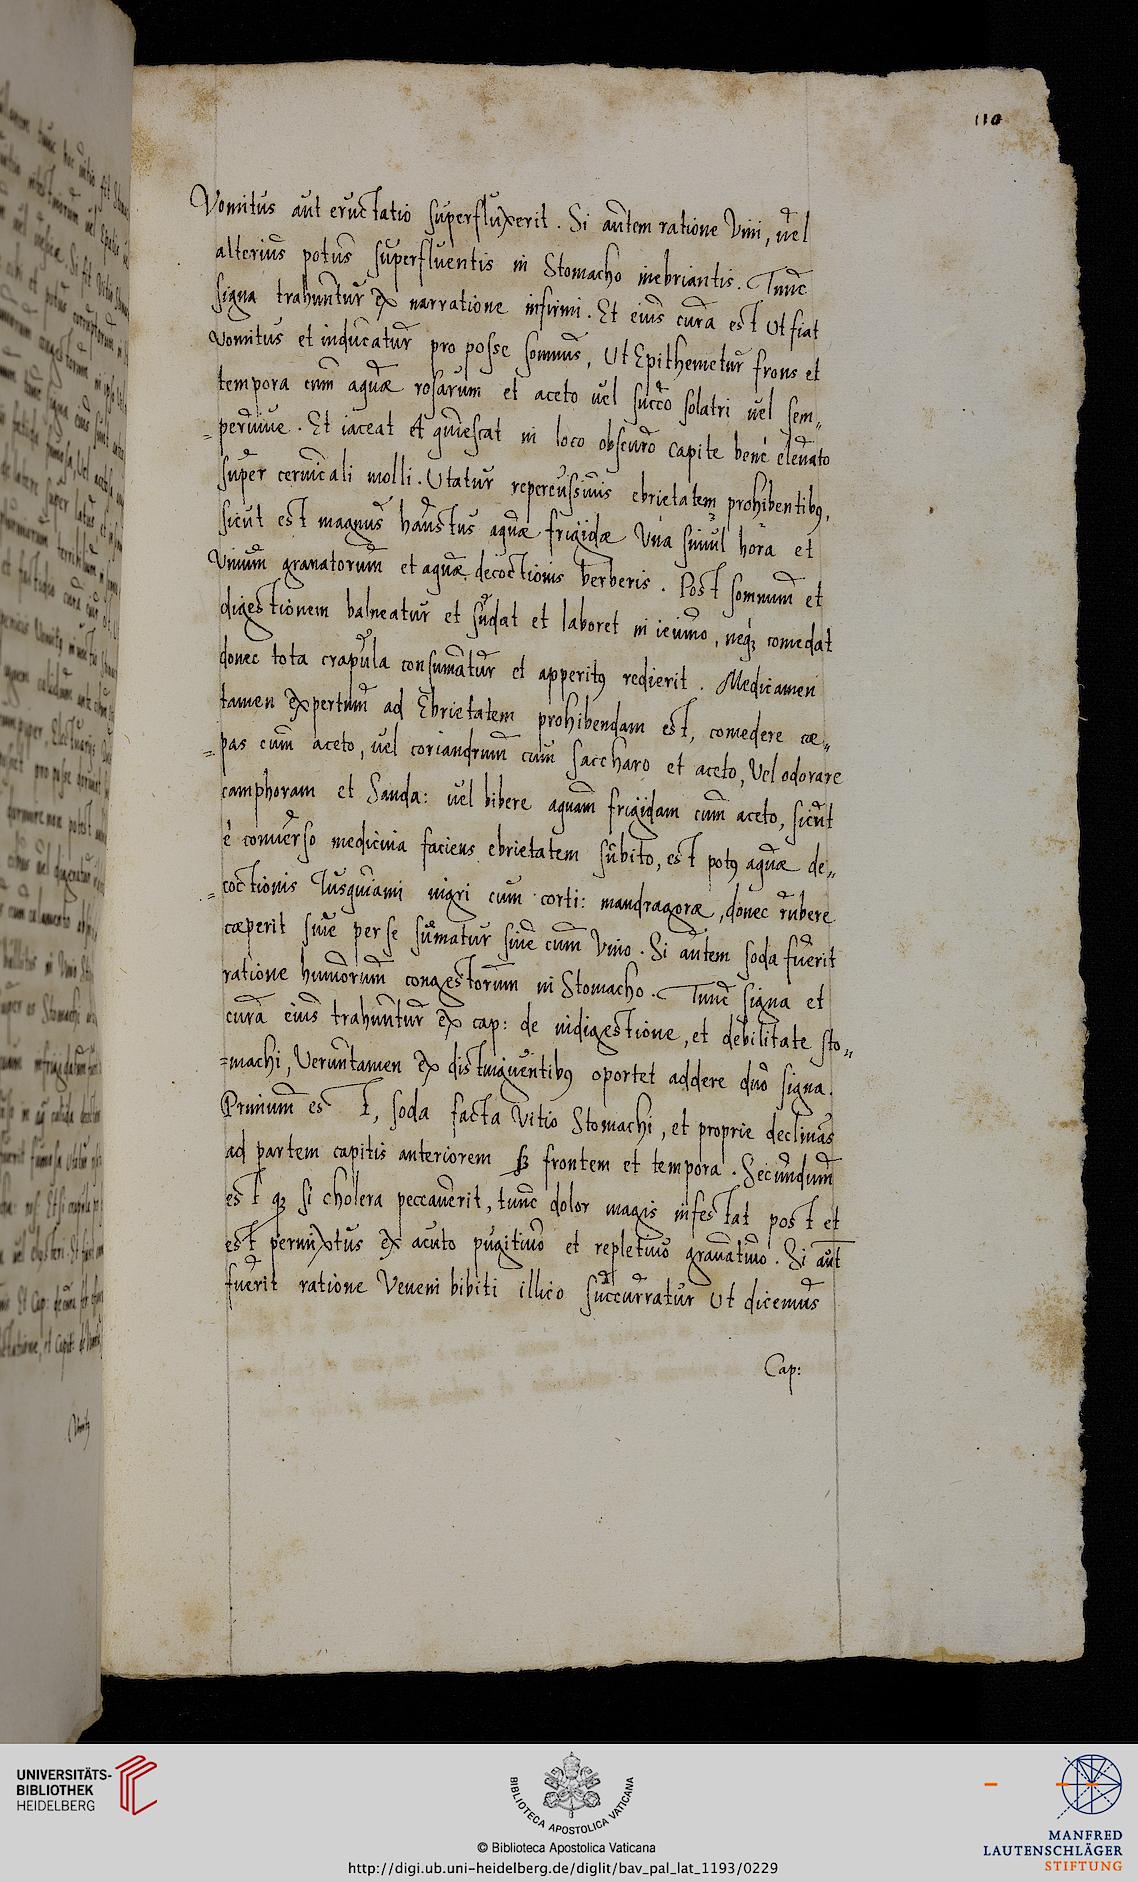 110
Vomitus aut eructatio superfluxerit. Si autem ratione Vini, uel
alterius potus superfluentis in Stomacho inebriantis. Tunc
signa trahuntur ex narratione infirmi. Et eius cura est Ut fiat
vomitus et inducatur pro posse somnus, Ut Epithemetur frons et
tempora cum aquæ rosarum et aceto uel succo solatri uel sem„
=peruiue. Et iaceat et quiescat in loco obscuro capite bene eleuato
super ceruicali molli. Utatur repercussiuis ebrietatem prohibentibꝰ,
sicut est magnus haustus aquæ frigidæ Una simul hora et
Vinum granatorum et aquæ decoctionis berberis. Post somnum et
digestionem balneatur et sudat et laboret in ieiuno, neqꝫ comedat
donec tota crapula consumatur et apperitꝰ redierit. Medicamen
tamen expertum ad Ebrietatem prohibendam est, comedere cæ„
=pas cum aceto, uel coriandrum cum saccharo et aceto, Vel odorare
camphoram et Sanda: uel bibere aquam frigidam cum aceto, sicut
è conuerso medicina faciens ebrietatem subito, est potꝰ aquæ de„
=coctionis Iusquiami nigri cum corti: mandragoræ, donec rubere
cæperit siue per se sumatur siue cum Vino. Si autem soda fuerit
ratione humorum congestorum in Stomacho. Tunc signa et
cura eius trahuntur ex cap: de indigestione, et debilitate sto„
=machi, Veruntamen ex distinguentibꝰ oportet addere duo signa.
Primum est, soda facta Vitio Stomachi, et proprie declinas
ad partem capitis anteriorem frontem et tempora. Secundum
est qꝫ si cholera peccauerit, tunc dolor magis infestat post et
est permixtus ex acuto pugitiuo et repletiuo grauatiuo. Si aut
fuerit ratione Veneni bibiti illico succurratur Ut dicemus
Cap:
UNIVERSITÄTS-
BIBLIOTHEK
HEIDELBERG
BIBLIOTECA APOSTOLICA VATICANA
© Biblioteca Apostolica Vaticana
http://digi.ub.uni-heidelberg.de/diglit/bav_pal_lat_1193/0229
MANFRED
LAUTENSCHLÄGER
STIFTUNG